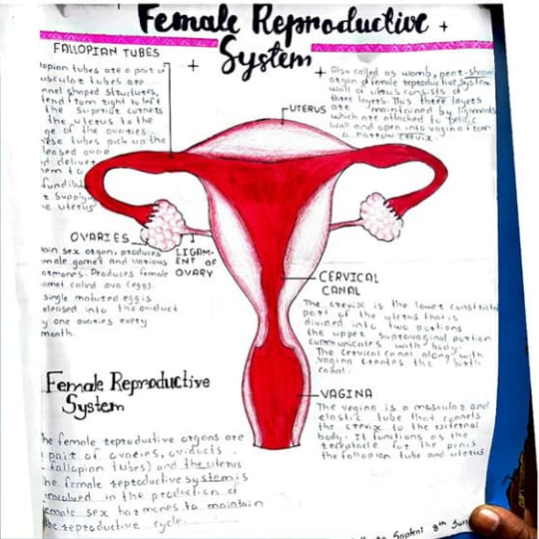 Female Reproductive
System
FALLOPIAN TUBES
lopian tubes are a part of
uscular tubes are
nnel shaped structures,
tend from right to left
the superior corners
the uterus to the
ge of the ovaries.
ese tubes pick up the
leased ova
d deliver
em to
fundib
e supply
e uterus
Also called as womb, pear-shaped
organ of female reproductive system
wall of uterus consists of
three layers. This three layers
are maintained by ligaments
which are attached to pelvic
wall and open into vagina from
a narrow cervix.
UTERUS
OVARIES
ain sex organ, produces
male gamet and various
ormones. Produces female
amet called ova (egg).
single matured egg is
eleased into the oviduct
y one ovaries every
month.
LIGAM-
ENT OF
OVARY
CERVICAL
CANAL
The crevix is the lower constricted
part of the uterus that is
divided into two portions
the upper supravaginal portion
communicates with body.
The cervical canal along with
vagina creates the birth
canal.
VAGINA
The vagina is a mascular and
elastic tube that connets
the crevix to the external
body. It functions as the
receptacle for the penis
the fallopian tube and uterus
Female Reproductive
System
he female reproductive organs are
pair of ovaries, oviducts
fallopian tubes) and the uterus
he female reproductive system is
involved in the production of
emale sex harmones to maintain
he reproductive cycle.
8th